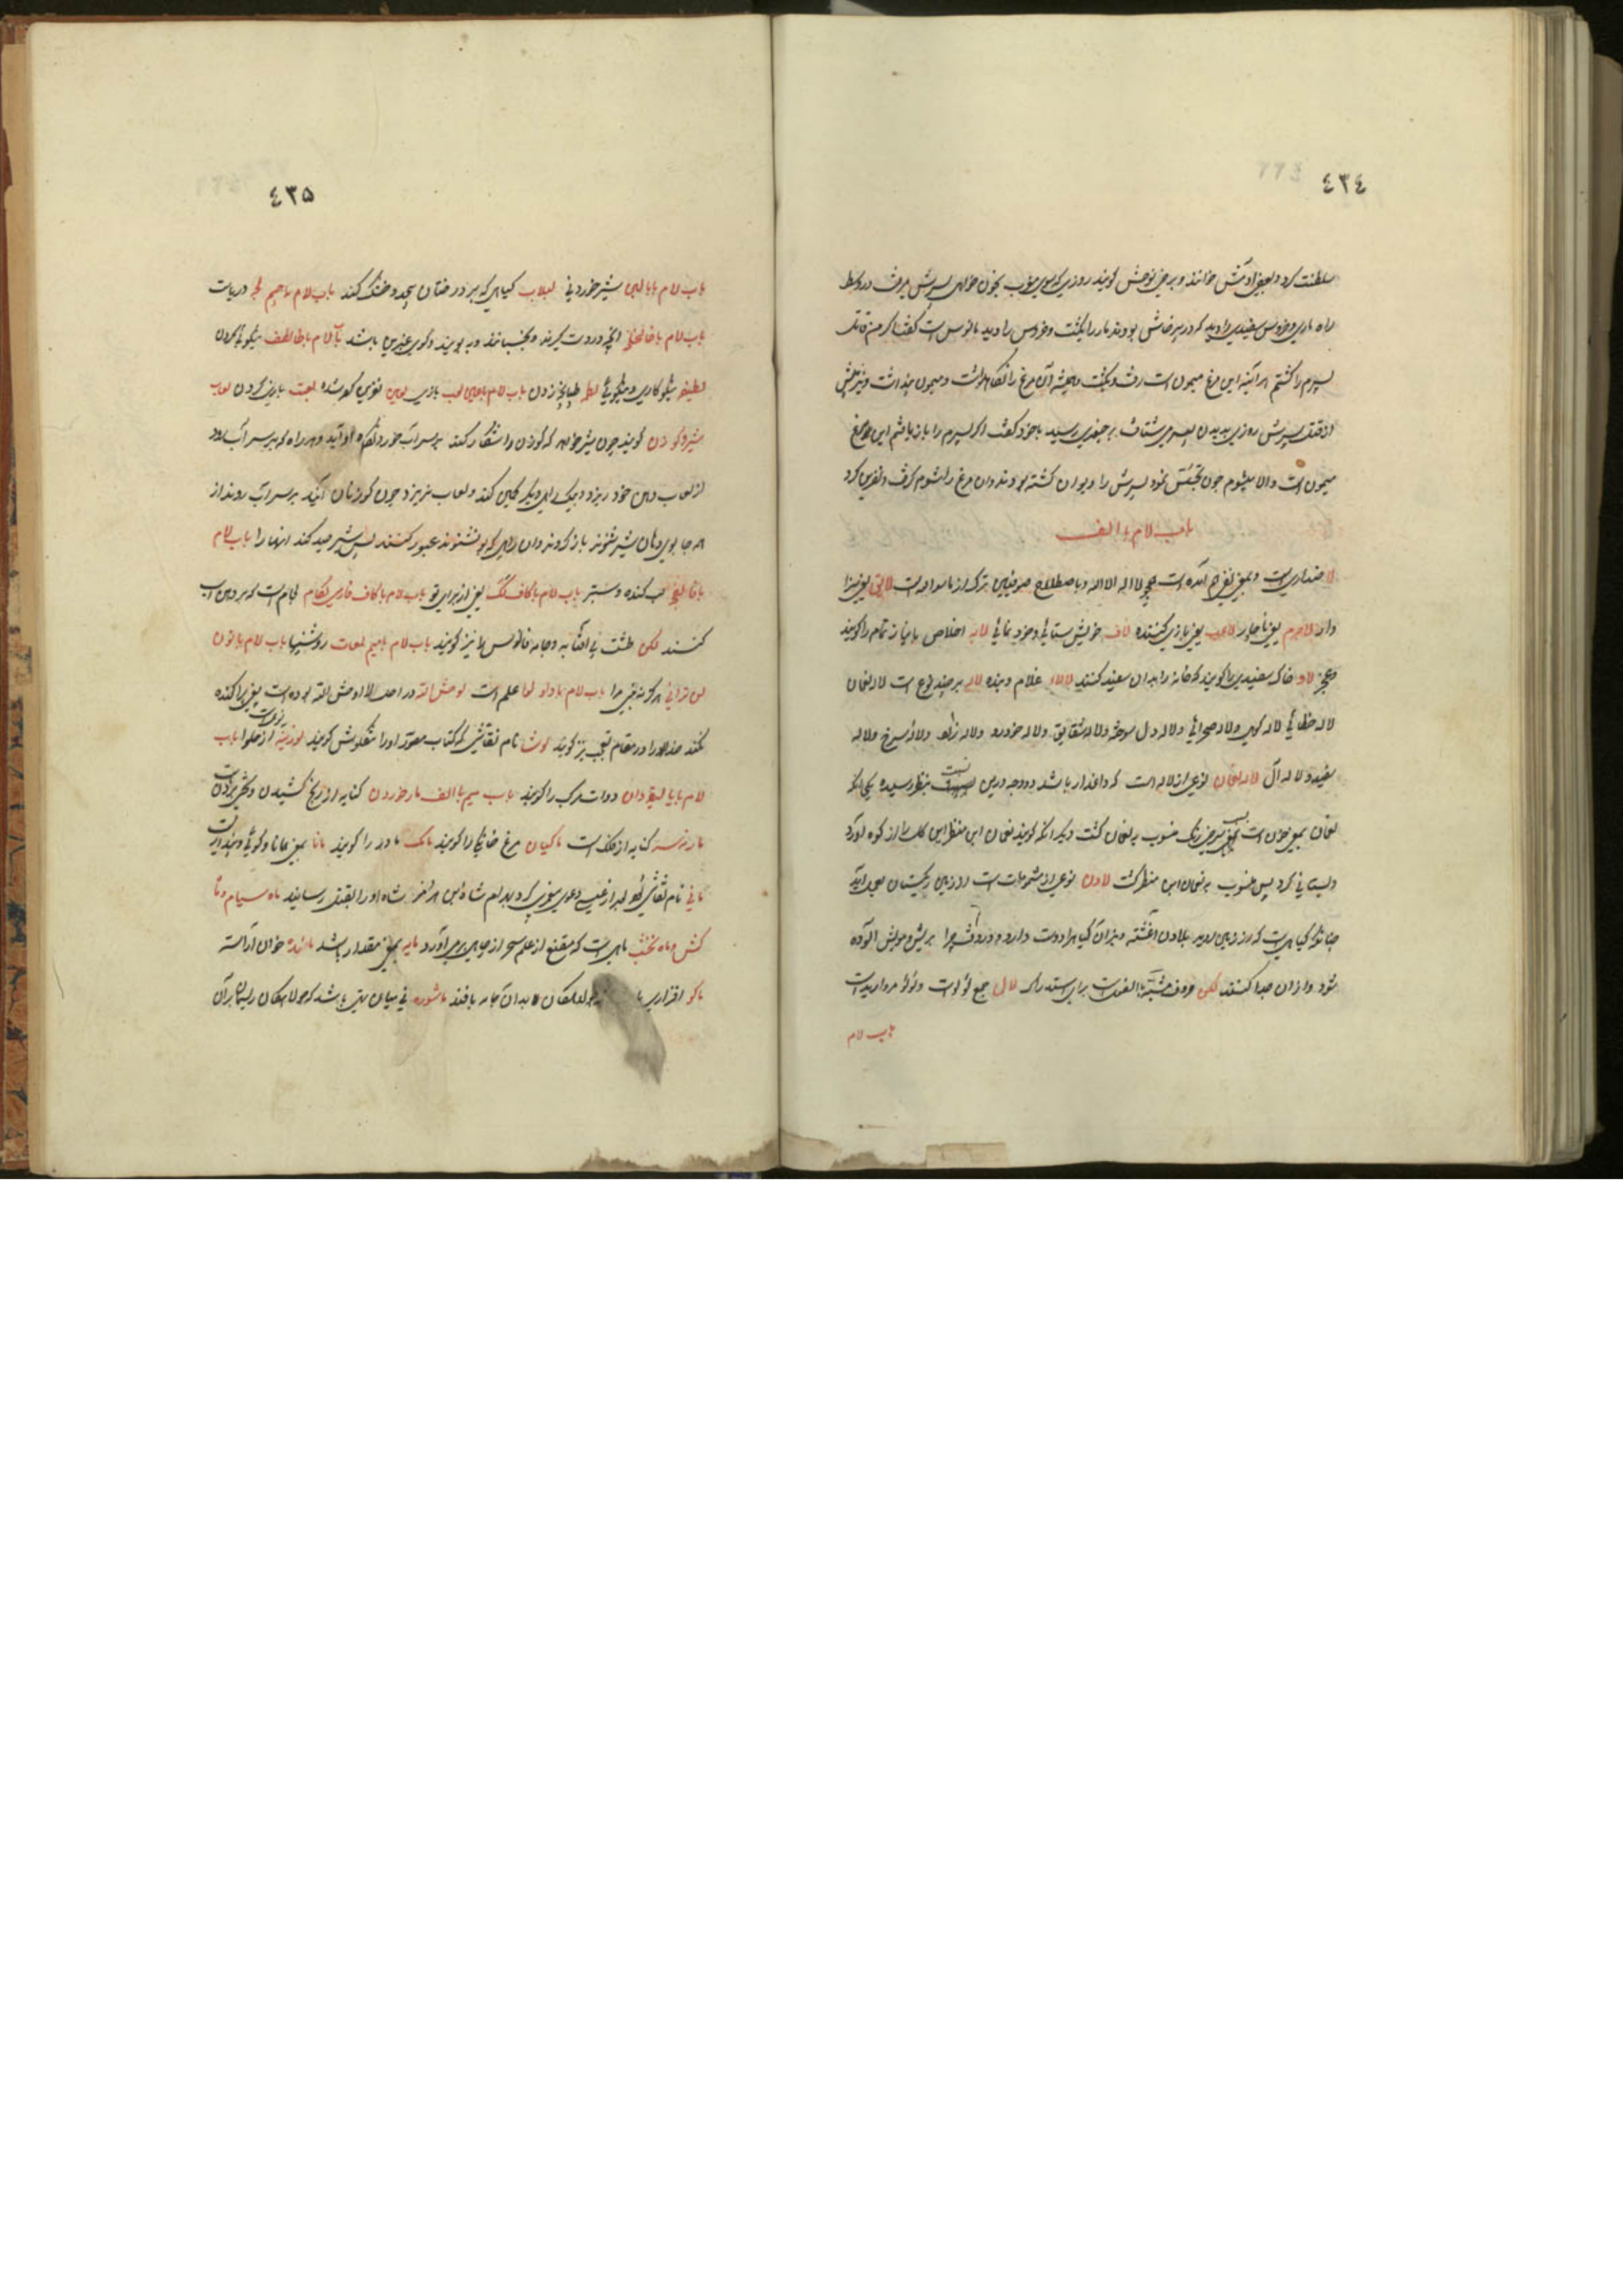 ٤٣٤
سلطنت کرد و بعضی خوانند و برخی کویند روزی که بسوی بخون خواهی پسرش میرفت در وسط
راه ماری و خروس سفیدی را دید که در پرخاش بودند مار را بکشت و خروس را دید مانوس است کفت اکر من قاتل
پسرم را کشتم هر آینه این مرغ میمون است رفت و بکشت و همیشه آن مرغ را نکاه داشت و میمون پنداشت
از قتل پسرش روزی به بدن پسر می شتافت بر جغدی رسید با خود کفت اکر پسرم را باز یابم این مرغ
میمون است والا میشوم چون تجسس نمود پسرش را دیوان کشته بودند و آن مرغ را شوم کرفت و نفرین کرد
باب لام با الف
لا ضد آری است و بمعنی نفی هم آمده است چو لا اله الا الله و باصطلاح صوفیین ترک از ماسوا است لایق یعنی سزا
وار لاجرم یعنی ناچار لاعب یعنی بازی کننده لاف خویش ستائی و خود نمائی لابه اخلاص با نیاز تمام را کویند
و عجز لاد خاک سفیدی را کویند که خانه را بدان سفید کنند لالا غلام و بنده لاله بر چند نوع است لاله نعمان
لاله خطائی لاله کوهی و لاله صحرائی و لاله دل سوخته و لاله شقایق و لاله خودرو و لاله سرخ و لاله
سفید و لاله آل لاله نعمان نوعی از لاله است که داغدار باشد و دو وجه درین نسبت بنظر رسیده یکی آنکه
نعمان بمعنی خون است سرخ رنک منسوب به نعمان کشت دیکر آنکه کویند نعمان ابن منظر این کل را از کوه آورد
و بستانی کرد پس منسوب به نعمان ابن منظر کشت لادن نوعی از مشمومات است از زمین ریکستان
چنانکه کیاهی است که از زمین روید بلادن آغشته و بز آن کیاه را دوست دارد و در وقت چرا بریش و مویش آلوده
شود و از آن جدا کنند لکن حروف مشبه بالفعل است برای استدراک لال جمع لؤلؤ است و لؤلؤ مروارید است
باب لام
٤٣٥
باب لام با با لبن شیر خوردنی لبلاب کیاهی که بر درختان پیچد و خشک کند باب لام با جیم لجه دریاست
باب لام با خا لخلخه آنچه در دست کیرند و بجنبانند و ببویند و کوی عنبرین باشد باب لام با طا لطف نیکوئی کردن
لطیفه نیکوکاری و نیکوئی لطم طپانچه زدن باب لام با عین لعب بازی لعین نفرین کرده شده لعبت بازی کردن لعاب
شیر و کوزن کویند چون شیر خواهد که کوزن را شکار کند بر سر آب خورد نکاه او آید و هر راه که بر سر آب رود
از لعاب دهن خود ریزد و بیک راهی دیکر کمین کند و لعاب نریزد چون کوزنان آیند بر سر آب روند از
هر جا بوی دهان شیر شنوند باز کردند و از آن راهی که بو نشنوند عبور کنند پس شیر صید کند آنها را باب لام
با فا لفج لب کنده و ستبر باب لام با کاف لک یعنی از برای تو باب لام با کاف فارسی لکام لجام است که بر دهن اسب
کنند لکن طشت پای آفتابه و جامه فانوس را نیز کویند باب لام با میم لمعات روشنیها باب لام با نون
لن ترانی هرکز نه بینی مرا باب لام با واو لوا علم است لوحش الله در اصل لا اوحش الله بوده است یعنی پراکنده
نکند خدا و در مقام تعجب نیز کویند لوشا نام نقاشی که کتاب مصور او را تنکلوش کویند لوزینه نوعیست از حلوا باب
لام با یا لیقدان دوات مرکب را کویند باب میم با الف مار خوردن کنایه از رنج کشیدن و تحیر بردنست
مار نه سر کنایه از فلک است ماکیان مرغ خانکی را کویند مامک مادر را کویند مانا بمعنی همانا و کوئی و پنداری
مانی نام نقاشی بود دعوی پیغمبری کرد بهرام شاه ابن هرمز شاه او را بقتل رسانید ماه سیام و ماه
کش و ماه نخشب ماهی است که مقنع از علم سحر از چاهی بر می آورد مایه بمعنی مقدار باشد مائده خوان آراسته
ماکو افزاری باشد جولاهکان را بدان جامه بافند ماشوره نی میان تهی باشد که جولاهکان ریسمان بر آن